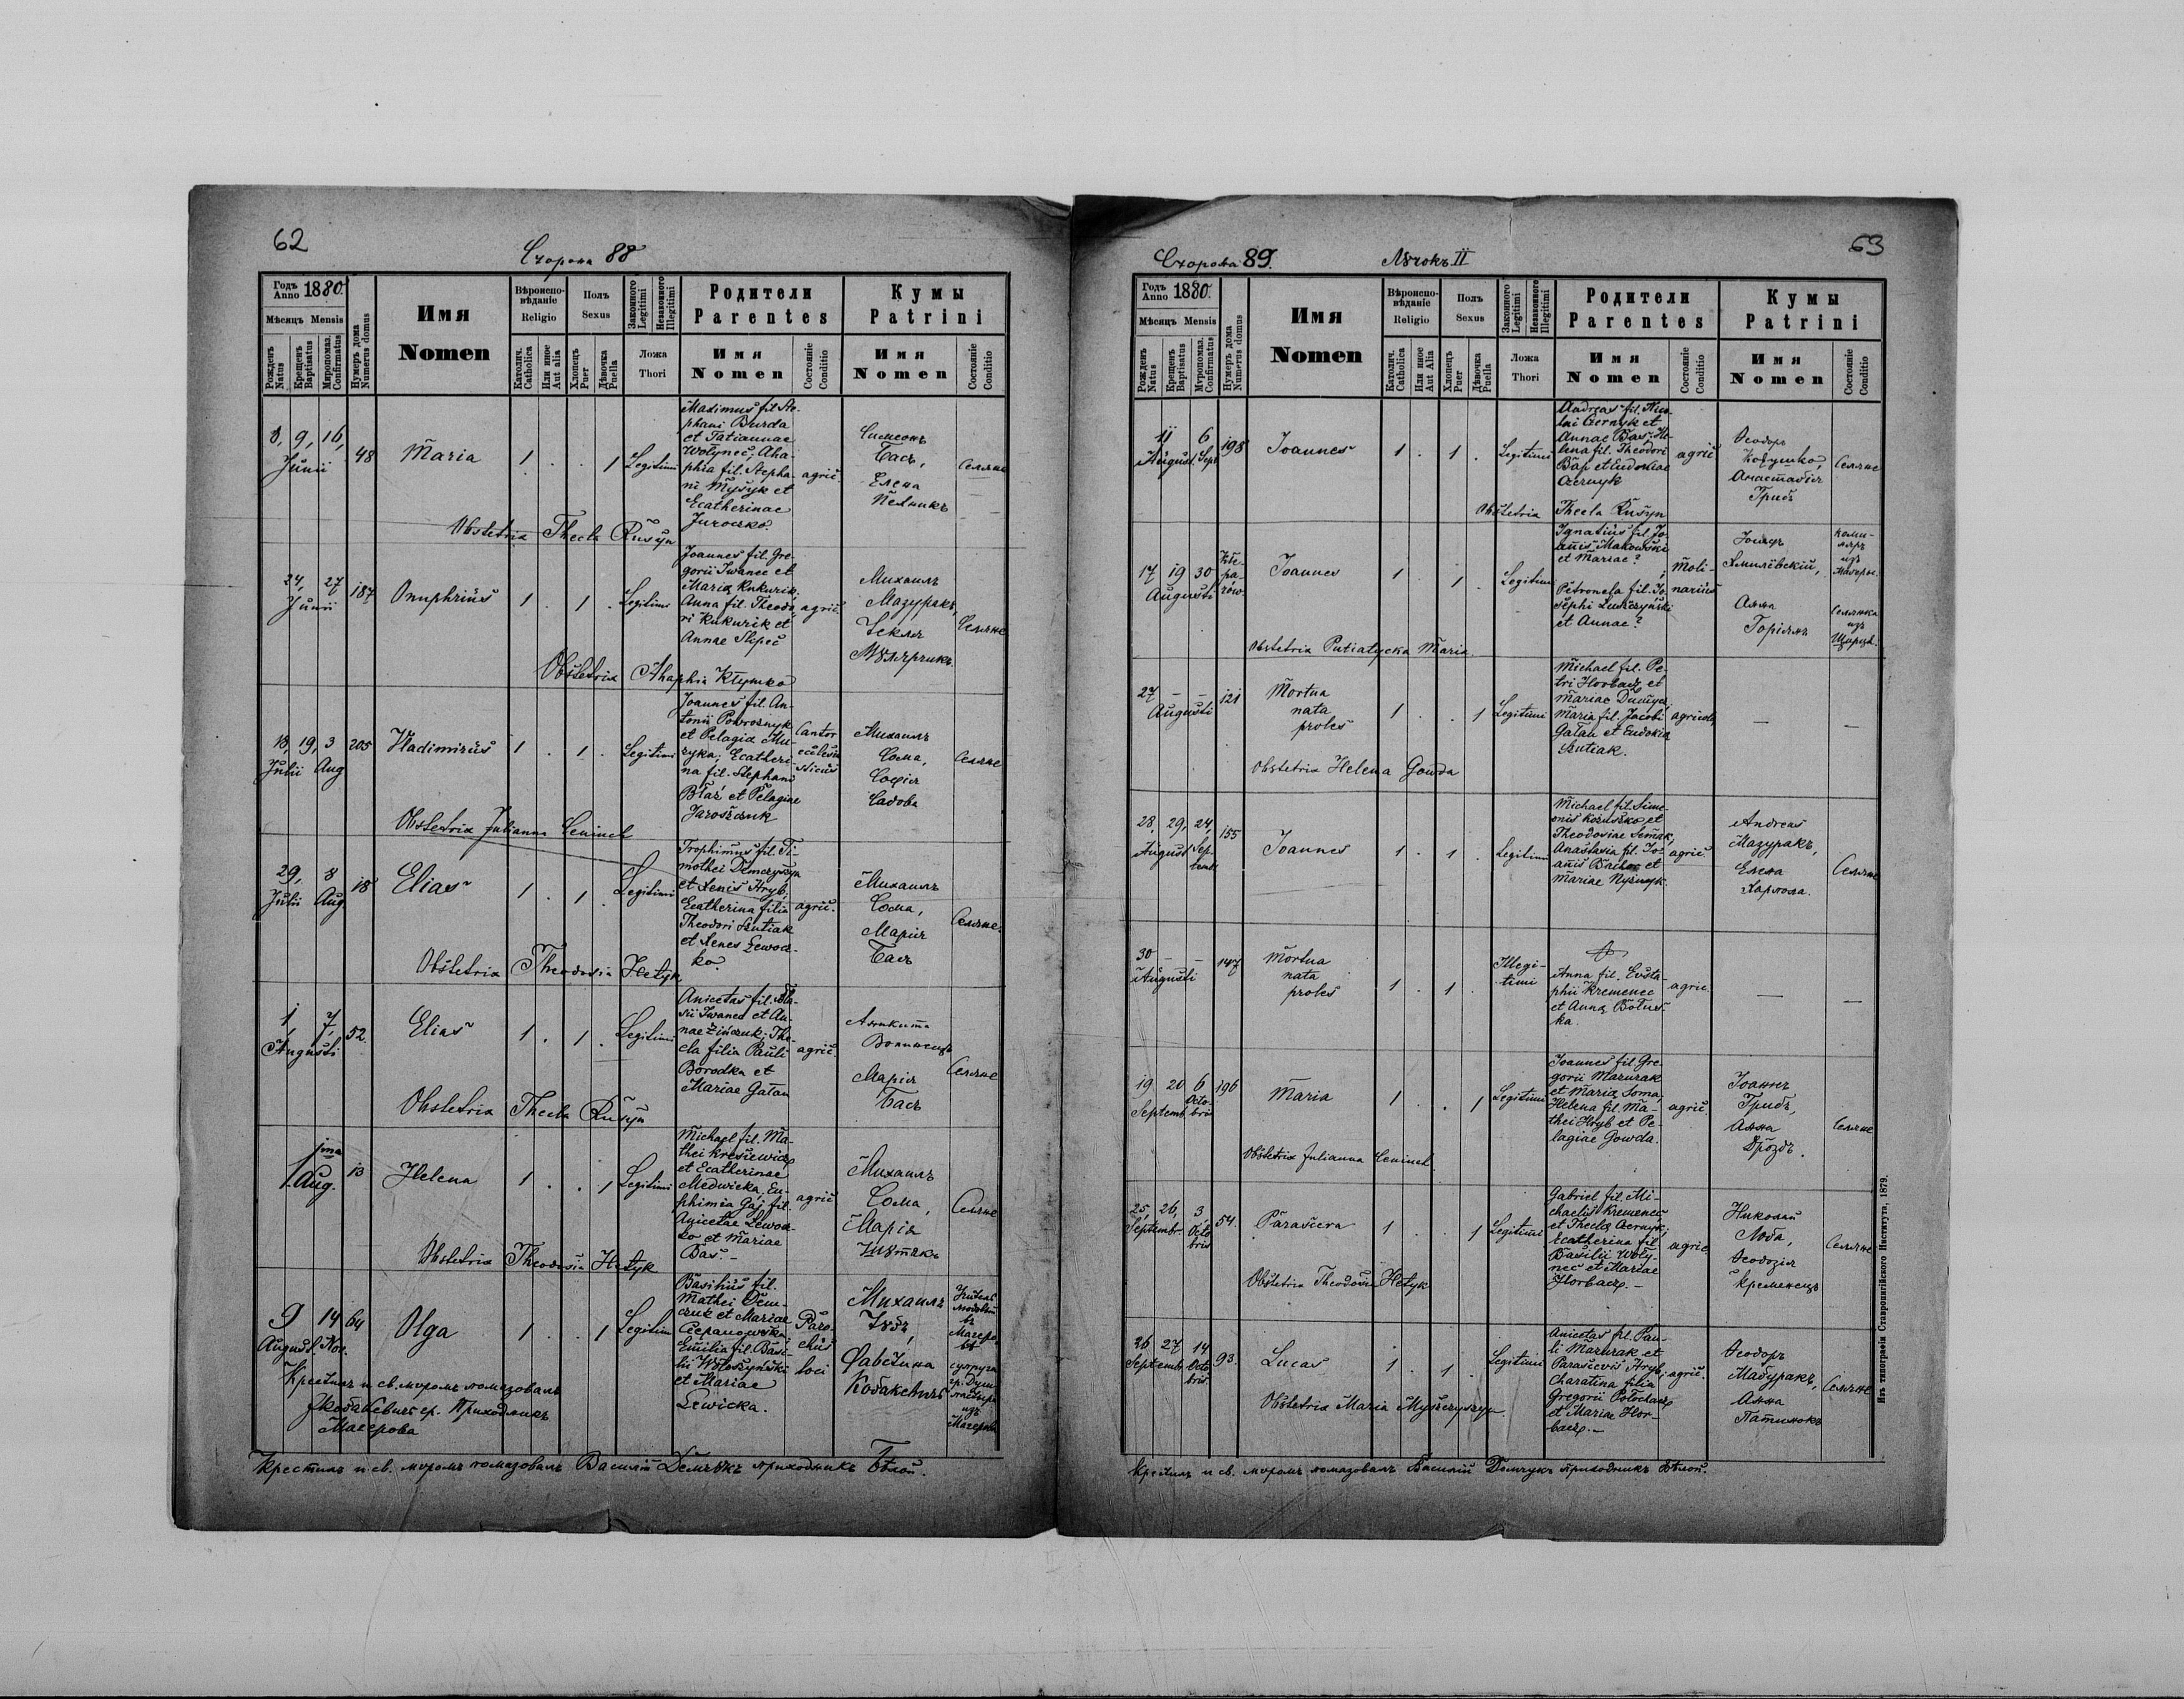 62
Сторона 88
Годъ Anno 1880.
Мѣсяцъ Mensis
Рожденъ Natus
Крещенъ Baptisatus
Миропомаз. Confirmatus
Нумеръ дома Numerus domus
Имя
Nomen
Вѣроисповѣданіе
Religio
Католич. Catholica
Или иное Aut alia
Полъ
Sexus
Хлопецъ Puer
Дѣвочка Puella
Законного Legitimi
Незаконного Illegitimi
Ложа
Thori
Родители
Parentes
Имя
Nomen
Состояніе Conditio
Кумы
Patrini
Имя
Nomen
Состояніе Conditio
8, 9, 16,
Junii
48
Maria
1 . . 1
Legitimi
Maximus fil. Ste-
phani Burda
et Tatiannae
Wołynec, Aha-
phia fil. Stepha-
ni Myszyk et
Ecatherinae
Juroczko.
agric.
Симеонъ
Басъ,
Елена
Селяне
Obstetrix Thecla Rusyn
24, 27
Junii
187
Onuphrius
1 . 1 .
Legitimi
Joannes fil. Gre-
gorii Iwanec et
Maria Kukurik;
Anna fil. Theodo-
ri Kukurik et
Annae Slipec
agric.
Михаилъ
Мазуракъ,
Текля
Селяне
Obstetrix Ahaphia Kłymko
18, 19, 3
Julii Aug
205
Vladimirus
1 . 1 .
Legitimi
Joannes fil. An-
tonii Powroznyk
et Pelagia Mu-
zyka; Ecatheri-
na fil. Stephani
Błaż et Pelagiae
Jaroszczuk
Cantor
ecclesia
sticus
Михаилъ
Сома,
Софія
Садова
Селяне
Obstetrix Julianna Ceninel
29, 8
Julii Aug
18
Elias
1 . 1 .
Legitimi
Trophimus fil. Ti-
mothei Demczyszyn
et Xenis Hryb,
Ecatherina filia
Theodori Szutiak
et Xenes Lewocz-
ko.
agric.
Михаилъ
Сома,
Марія
Басъ
Селяне.
Obstetrix Theodosia Hetyk
1, 7,
Augusti
52.
Elias
1 . 1 .
Legitimi
Anicetas fil. Ba-
sii Iwanec et An-
nae Zińczuk; The-
cla filia Pauli
Borodka et
Mariae Gałan
agric.
Аникита
Волинецъ
Марія
Басъ
Селяне
Obstetrix Thecla Rusyn
1. jma
Aug.
13
Helena
1 . . 1
Legitimi
Michael fil. Ma-
thei Kresiewicz
et Ecatherinae
Medwicka, Eu-
phimia Gaj fil.
Anicetae Lewocz-
ko et Mariae
Bas. -
agric
Михаилъ
Сома,
Марія
Шутякъ
Селяне
Obstetrix Theodosia Hetyk
9 14
August. Nov.
64
Olga
1 . . 1
Legitimi
Basilius fil.
Mathei Dem-
czuk et Mariae
Czepanowska;
Emilia fil. Basi-
lii Wołoszynski
et Mariae
Lewicka.
Paro-
chus
loci
Михаилъ
Фавстина
Крестилъ и св. мѵромъ помазовалъ
гр. Приходникъ
Магерова
Крестилъ и св. мѵромъ помазовалъ Василій Демчукъ приходникъ Бѣлой.
63
Сторона 89.
Аркушъ II
Годъ Anno 1880.
Мѣсяцъ Mensis
Рожденъ Natus
Крещенъ Baptisatus
Мѵропомаз. Confirmatus
Нумеръ дома Numerus domus
Имя
Nomen
Вѣроисповѣданіе
Religio
Католич. Catholica
Или иное Aut alia
Полъ
Sexus
Хлопецъ Puer
Дѣвочка Puella
Законного Legitimi
Незаконного Illegitimi
Ложа
Thori
Родители
Parentes
Имя
Nomen
Состояніе Conditio
Кумы
Patrini
Имя
Nomen
Состояніе Conditio
11 6
August. Sept
198
Joannes
1 . 1 .
Legitimi
Andreas fil. Nico-
lai Czernyk et
Annae Bas; He-
lena fil. Theodori
Bap et Eudoxiae
Czernyk
agric
Ѳеодоръ
Козушко,
Анастасія
Грибъ
Селяне
Obstetrix Thecla Rusyn
17 19 30
Augusti
Joannes
1 . 1 .
Legitimi
Ignatius fil. Jo-
annis Makowski
et Mariae?;
Petronela fil. Jo-
sephi Luszczynski
et Annae?
Moli-
narius
Іосифъ
Хмилёвскій,
Анна
Горіянъ
Селянка
изъ
Obstetrix Putiatycka Maria.
27 - -
Augusti
121
Mortua
nata
proles
1 . . 1
Legitimi
Michael fil. Pe-
tri Horbacz et
Mariae Dumycz,
Maria fil. Jacobi
Gałan et Eudokia
Szutiak.
agricola
-
-
Obstetrix Helena Gowda
28, 29, 24,
August Sep-
temb
155
Joannes
1 . 1 .
Legitimi
Michael fil. Sime-
onis Kozuszko et
Theodosiae Semak,
Anastasia fil. Jo-
annis Bachor et
Mariae Nyznyk.
agric.
Andreas
Мазуракъ,
Елена
Селяне
30 - -
Augusti
147
Mortua
nata
proles
1 . 1 .
Illegi-
timi
Anna fil. Eusta-
phii Kremenec
et Anna Bołus-
ka.
agric.
-
-
19 20 6
Septemb. Octo-
bris
196
Maria
1 . . 1
Legitimi
Joannes fil. Gre-
gorii Mazurak
et Maria Soma,
Helena fil. Ma-
thei Hryb et Pe-
lagiae Gowda.
agric.
Іоаннъ
Грибъ,
Анна
Дроздъ.
Селяне
Obstetrix Julianna Ceninel.
25, 26, 3,
Septembr Octo
bris
54.
Parascera
1 . . 1
Legitimi
Gabriel fil. Mi-
chaelis Kremenec
et Thecla Czernyk;
Ecatherina fil.
Basilii Woły-
nec et Mariae
Horbacz. -
agric
Николай
Лоба,
Ѳеодозія
Кременецъ
Селяне
Obstetrix Theodosia Hetyk
26 27 14
Septemb. Octo
bris
93.
Lucas
1 . 1 .
Legitimi
Anicetas fil. Pau-
li Mazurak et
Parascevis Hryb,
Charatina filia
Gregorii Potochacz
et Mariae Hor-
bacz. -
agric.
Ѳеодоръ
Мазуракъ,
Анна
Селяне
Obstetrix Maria Myszczyszyn.
Крестилъ и св. мѵромъ помазовалъ Василій Демчукъ приходникъ Бѣлой.
Изъ типографіи Ставропигійского Института, 1879.